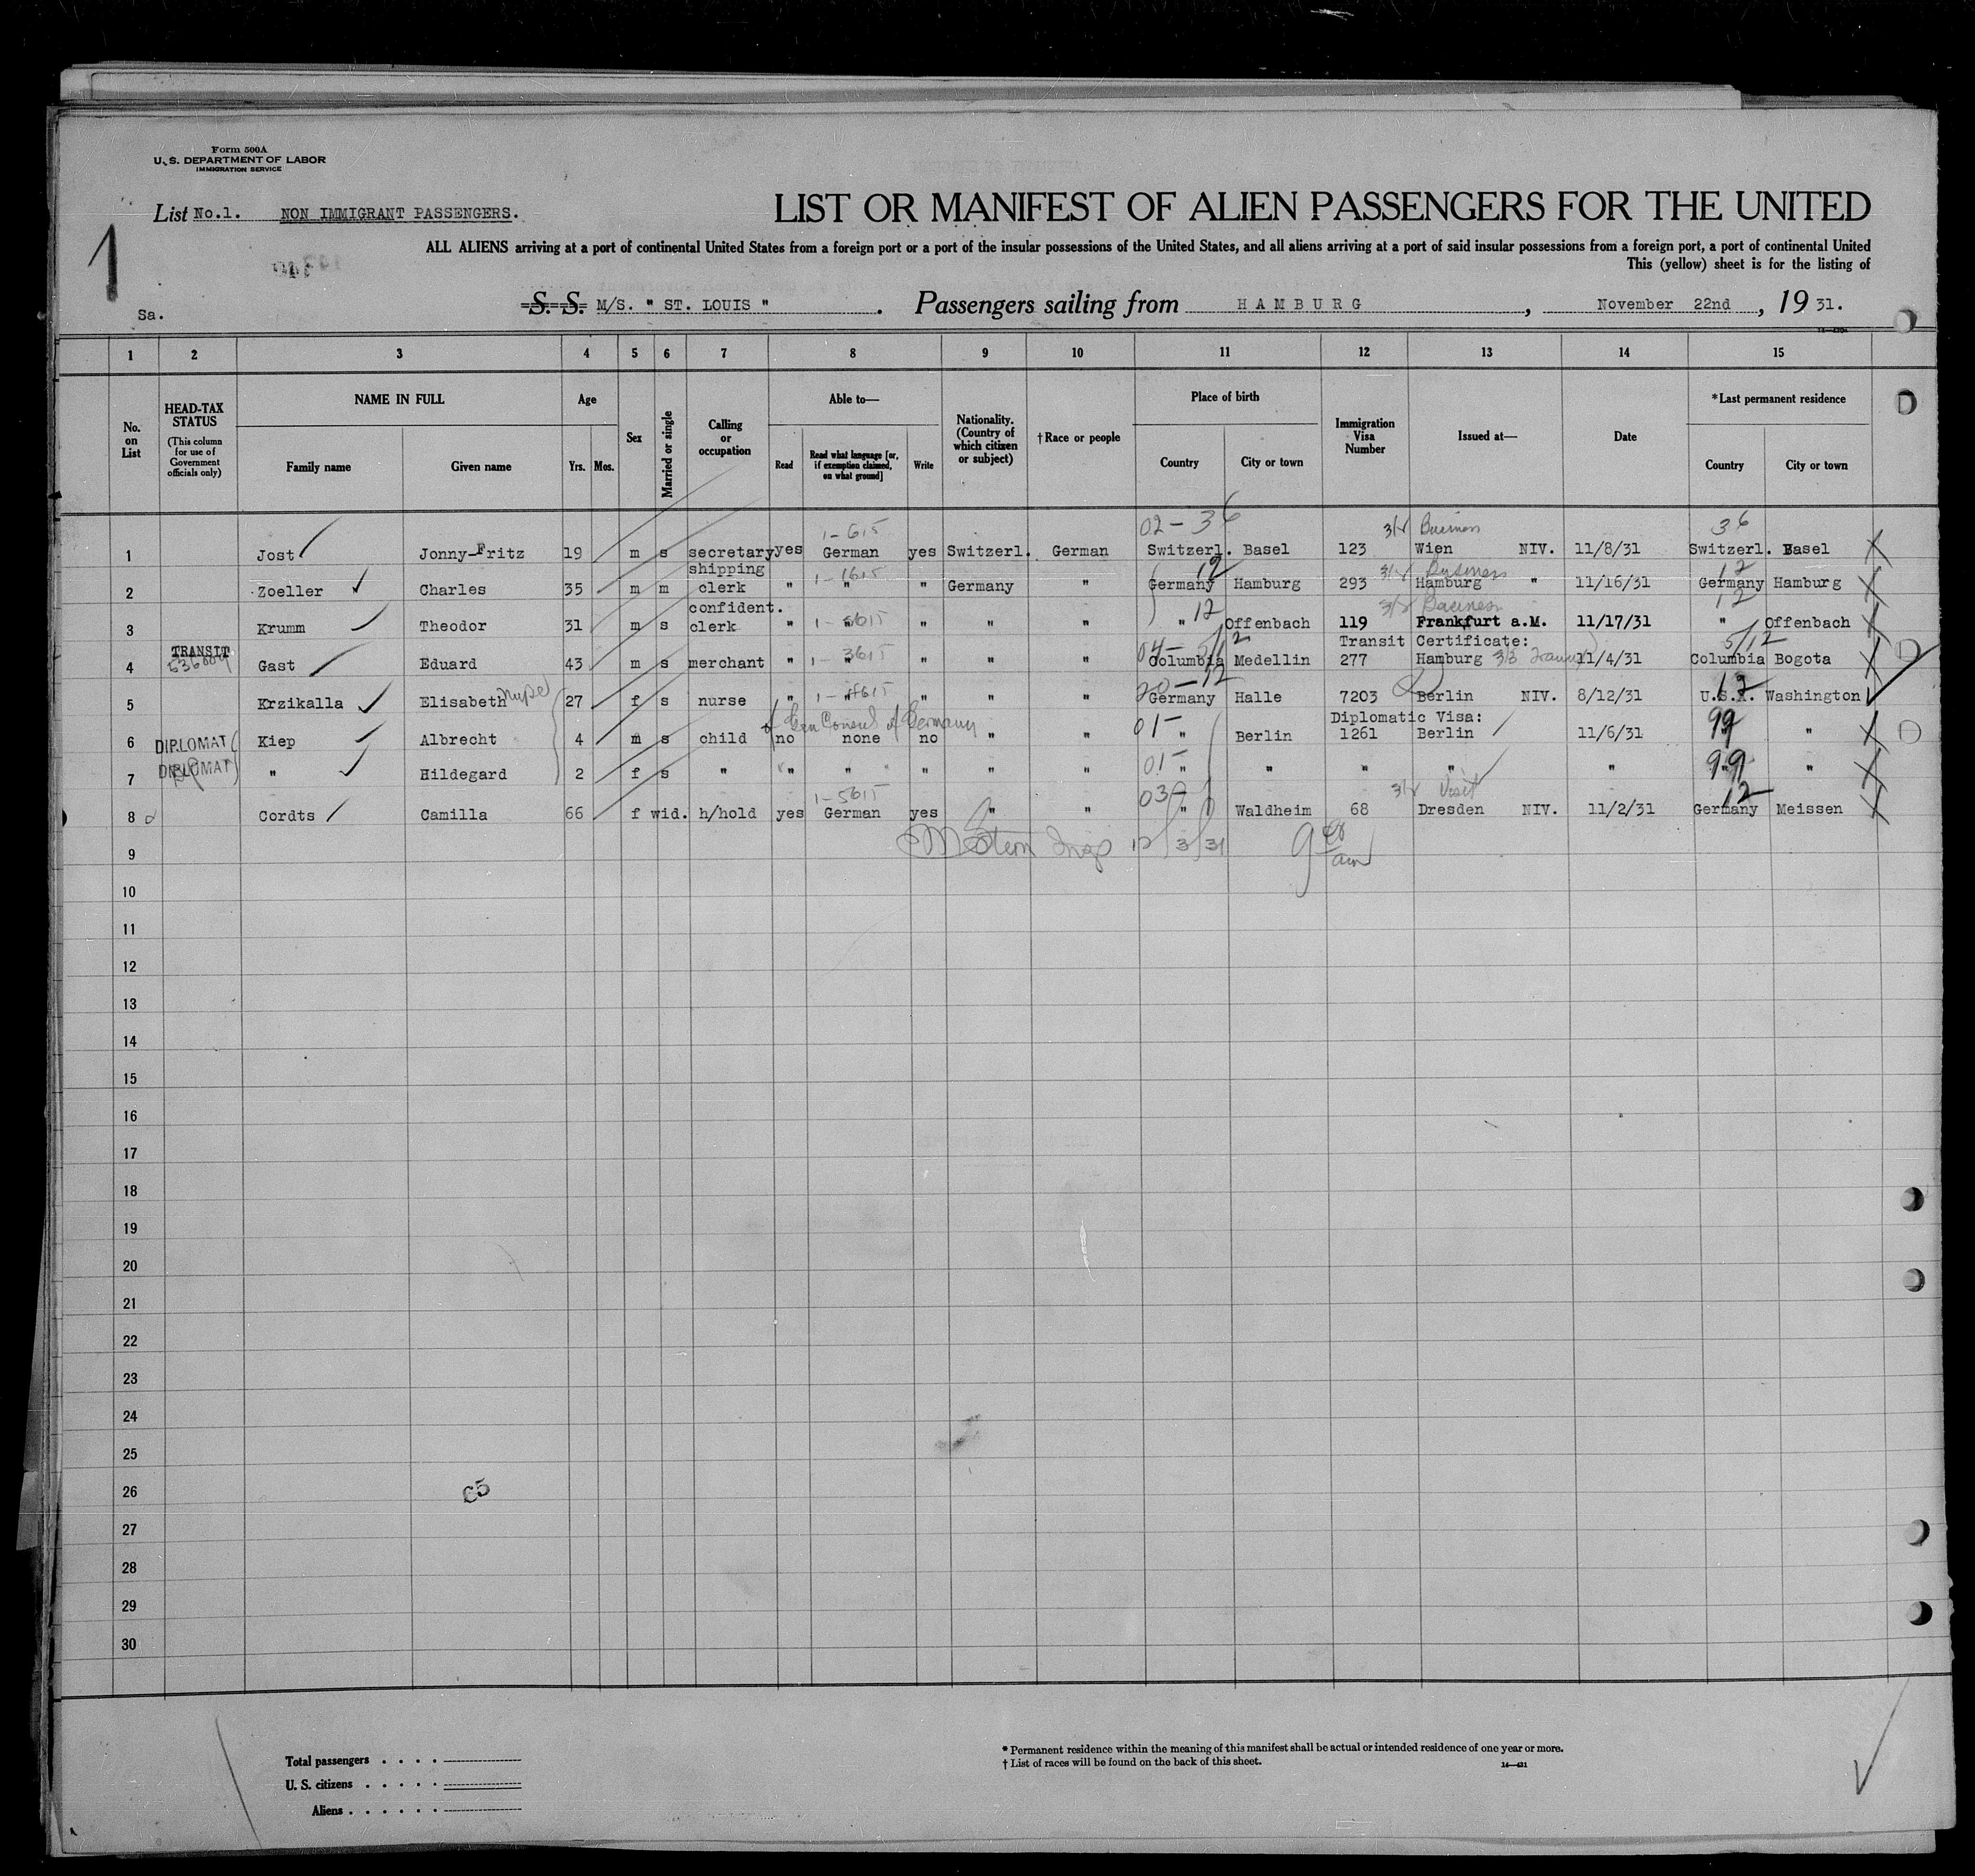 Form 500A
U. S. DEPARTMENT OF LABOR
IMMIGRATION SERVICE
List No.1. NON IMMIGRANT PASSENGERS.
LIST OR MANIFEST OF ALIEN PASSENGERS FOR THE UNITED
1
ALL ALIENS arriving at a port of continental United States from a foreign port or a port of the insular possessions of the United States, and all aliens arriving at a port of said insular possessions from a foreign port, a port of continental United
This (yellow) sheet is for the listing of
Sa.
S. S. M/S. " ST. LOUIS ". Passengers sailing from HAMBURG, November 22nd, 19 31.
1 2 3 4 5 6 7 8 9 10 11 12 13 14 15
No. on List
HEAD-TAX STATUS (This column for use of Government officials only)
NAME IN FULL Family name Given name
Age Yrs. Mos.
Sex
Married or single
Calling or occupation
Able to— Read Read what language [or, if exemption claimed, on what ground] Write
Nationality. (Country of which citizen or subject)
†Race or people
Place of birth Country City or town
Immigration Visa Number
Issued at—
Date
*Last permanent residence Country City or town
1-615 02-36 3/4 Business 36
1 Jost Jonny-Fritz 19 m s secretary yes German yes Switzerl. German Switzerl. Basel 123 Wien NIV. 11/8/31 Switzerl. Basel
1-1615 12 Business 12
2 Zoeller Charles 35 m m shipping clerk " " " Germany " Germany Hamburg 293 Hamburg " 11/16/31 Germany Hamburg
12 Business 12
3 Krumm Theodor 31 m s confident. clerk " " " " " " Offenbach 119 Frankfurt a.M. 11/17/31 " Offenbach
TRANSIT 1-3615 04-5/12 Transit Certificate: 5/12
536009
4 Gast Eduard 43 m s merchant " " " " " Columbia Medellin 277 Hamburg 3/3 11/4/31 Columbia Bogota
20-12 12
5 Krzikalla Elisabeth nurse 27 f s nurse " " " " " Germany Halle 7203 Berlin NIV. 8/12/31 U.S.A. Washington
of Gen Consul of Germany 01- Diplomatic Visa: 99
6 DIPLOMAT Kiep Albrecht 4 m s child no none no " " " Berlin 1261 Berlin 11/6/31 " "
01- 99
7 DIPLOMAT " Hildegard 2 f s " " " " " " " " " " " " "
1-5615 3/4 Visit 12
8 Cordts Camilla 66 f wid. h/hold yes German yes " " " Waldheim 68 Dresden NIV. 11/2/31 Germany Meissen
9 Insp 12/3/31 am
10
11
12
13
14
15
16
17
18
19
20
21
22
23
24
25
26
27
28
29
30
Total passengers . . . .
U. S. citizens . . . . .
Aliens . . . . . .
* Permanent residence within the meaning of this manifest shall be actual or intended residence of one year or more.
† List of races will be found on the back of this sheet. 14—431